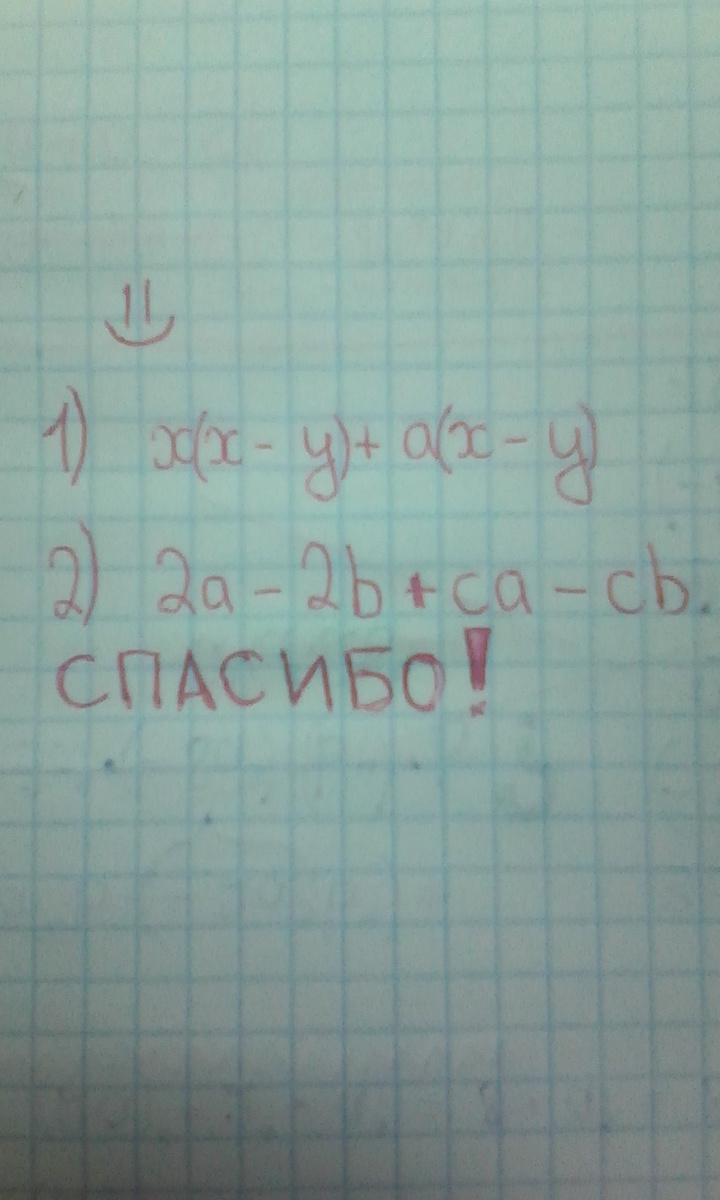 1) x(x - y) + a(x - y)
2) 2a - 2b + ca - cb.
СПАСИБО!